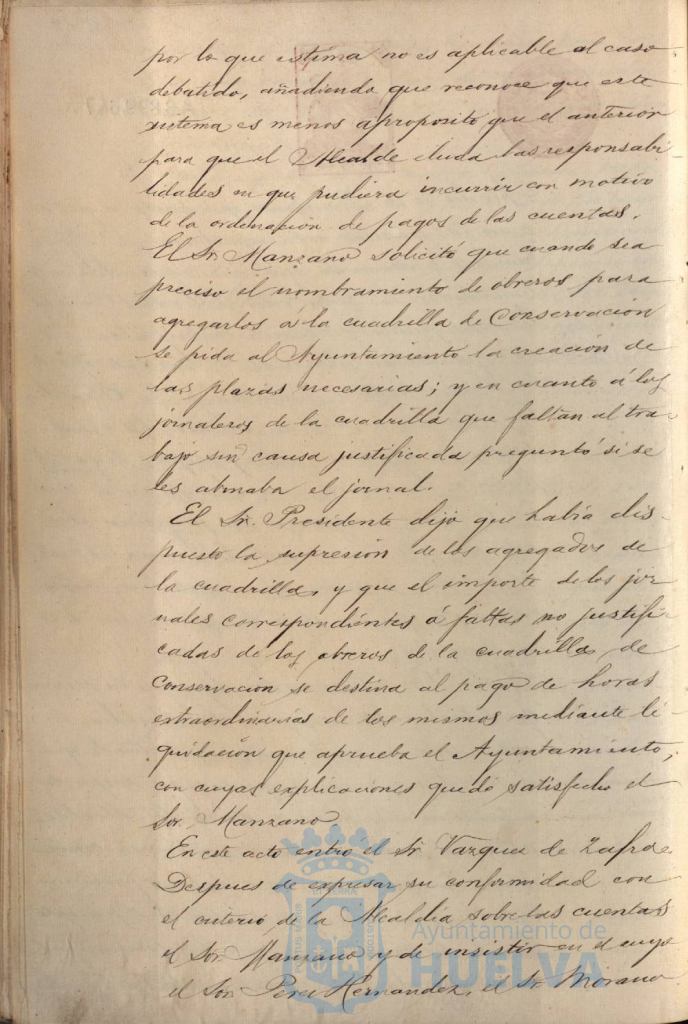 por lo que estima no es aplicable al caso
debatido, añadiendo que reconoce que este
sistema es menos aproposito que el anterior
para que el Alcalde eluda las responsabi-
lidades en que pudiera incurrir con motivo
de la ordenación de pagos de las cuentas.
El Sr. Manzano solicitó que cuando sea
preciso el nombramiento de obreros para
agregarlos á la cuadrilla de Conservación
se pida al Ayuntamiento la creación de
las plazas necesarias; y en cuanto á los
jornaleros de la cuadrilla que faltan al tra-
bajo sin causa justificada preguntó si se
les abonaba el jornal.
El Sr. Presidente dijo que había dis-
puesto la supresión de los agregados de
la cuadrilla, y que el importe de los jor-
nales correspondientes á faltas no justifi-
cadas de los obreros de la cuadrilla de
Conservación se destina al pago de horas
extraordinarias de los mismos mediante li-
quidación que aprueba el Ayuntamiento,
con cuyas explicaciones quedó satisfecho el
Sor. Manzano
En este acto entró el Sr. Vazquez de Zafra.
Despues de expresar su conformidad con
el criterio de la Alcaldia sobre las cuentas
el Sor. Manzano y de insistir en el suyo
el Sor. Perez Hernandez, el Sr. Morano
Ayuntamiento de
HUELVA